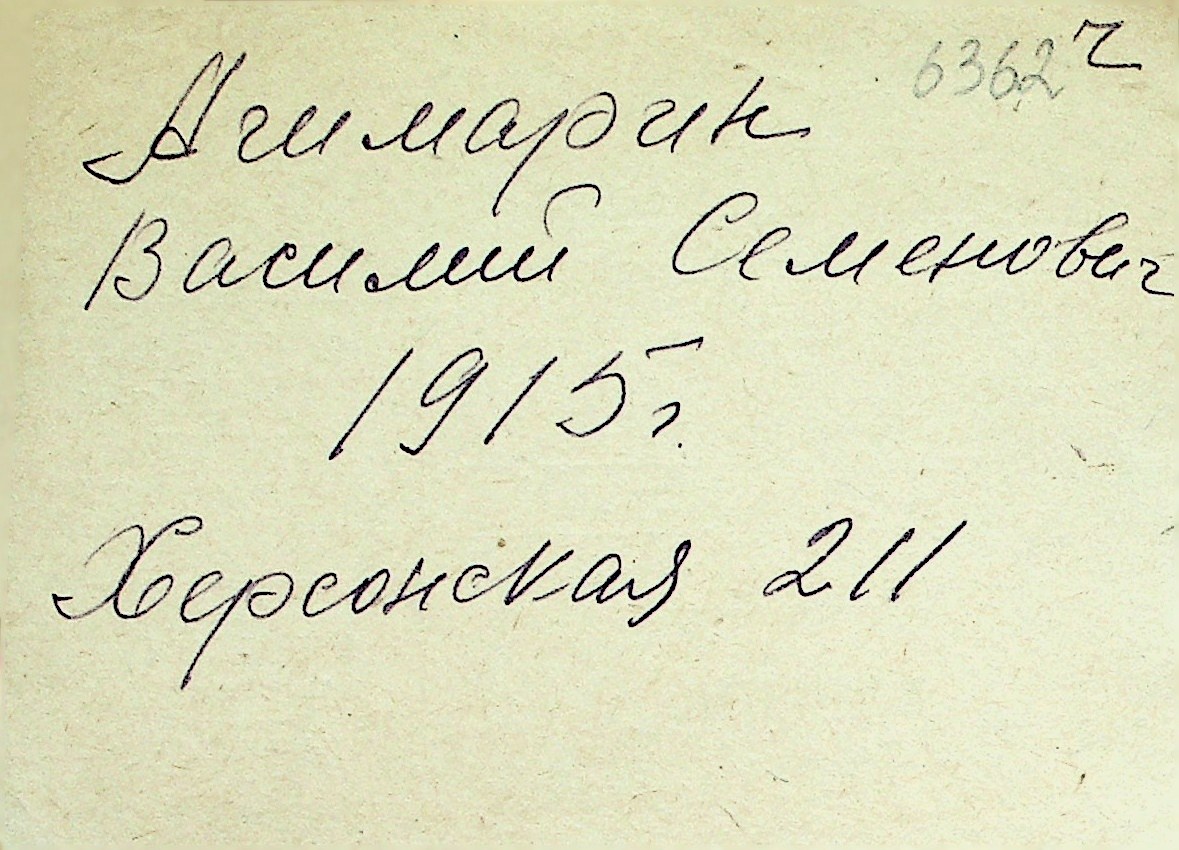 6362 ч
Ачимарин
Василий Семенович
1915г.
Херсонская 211